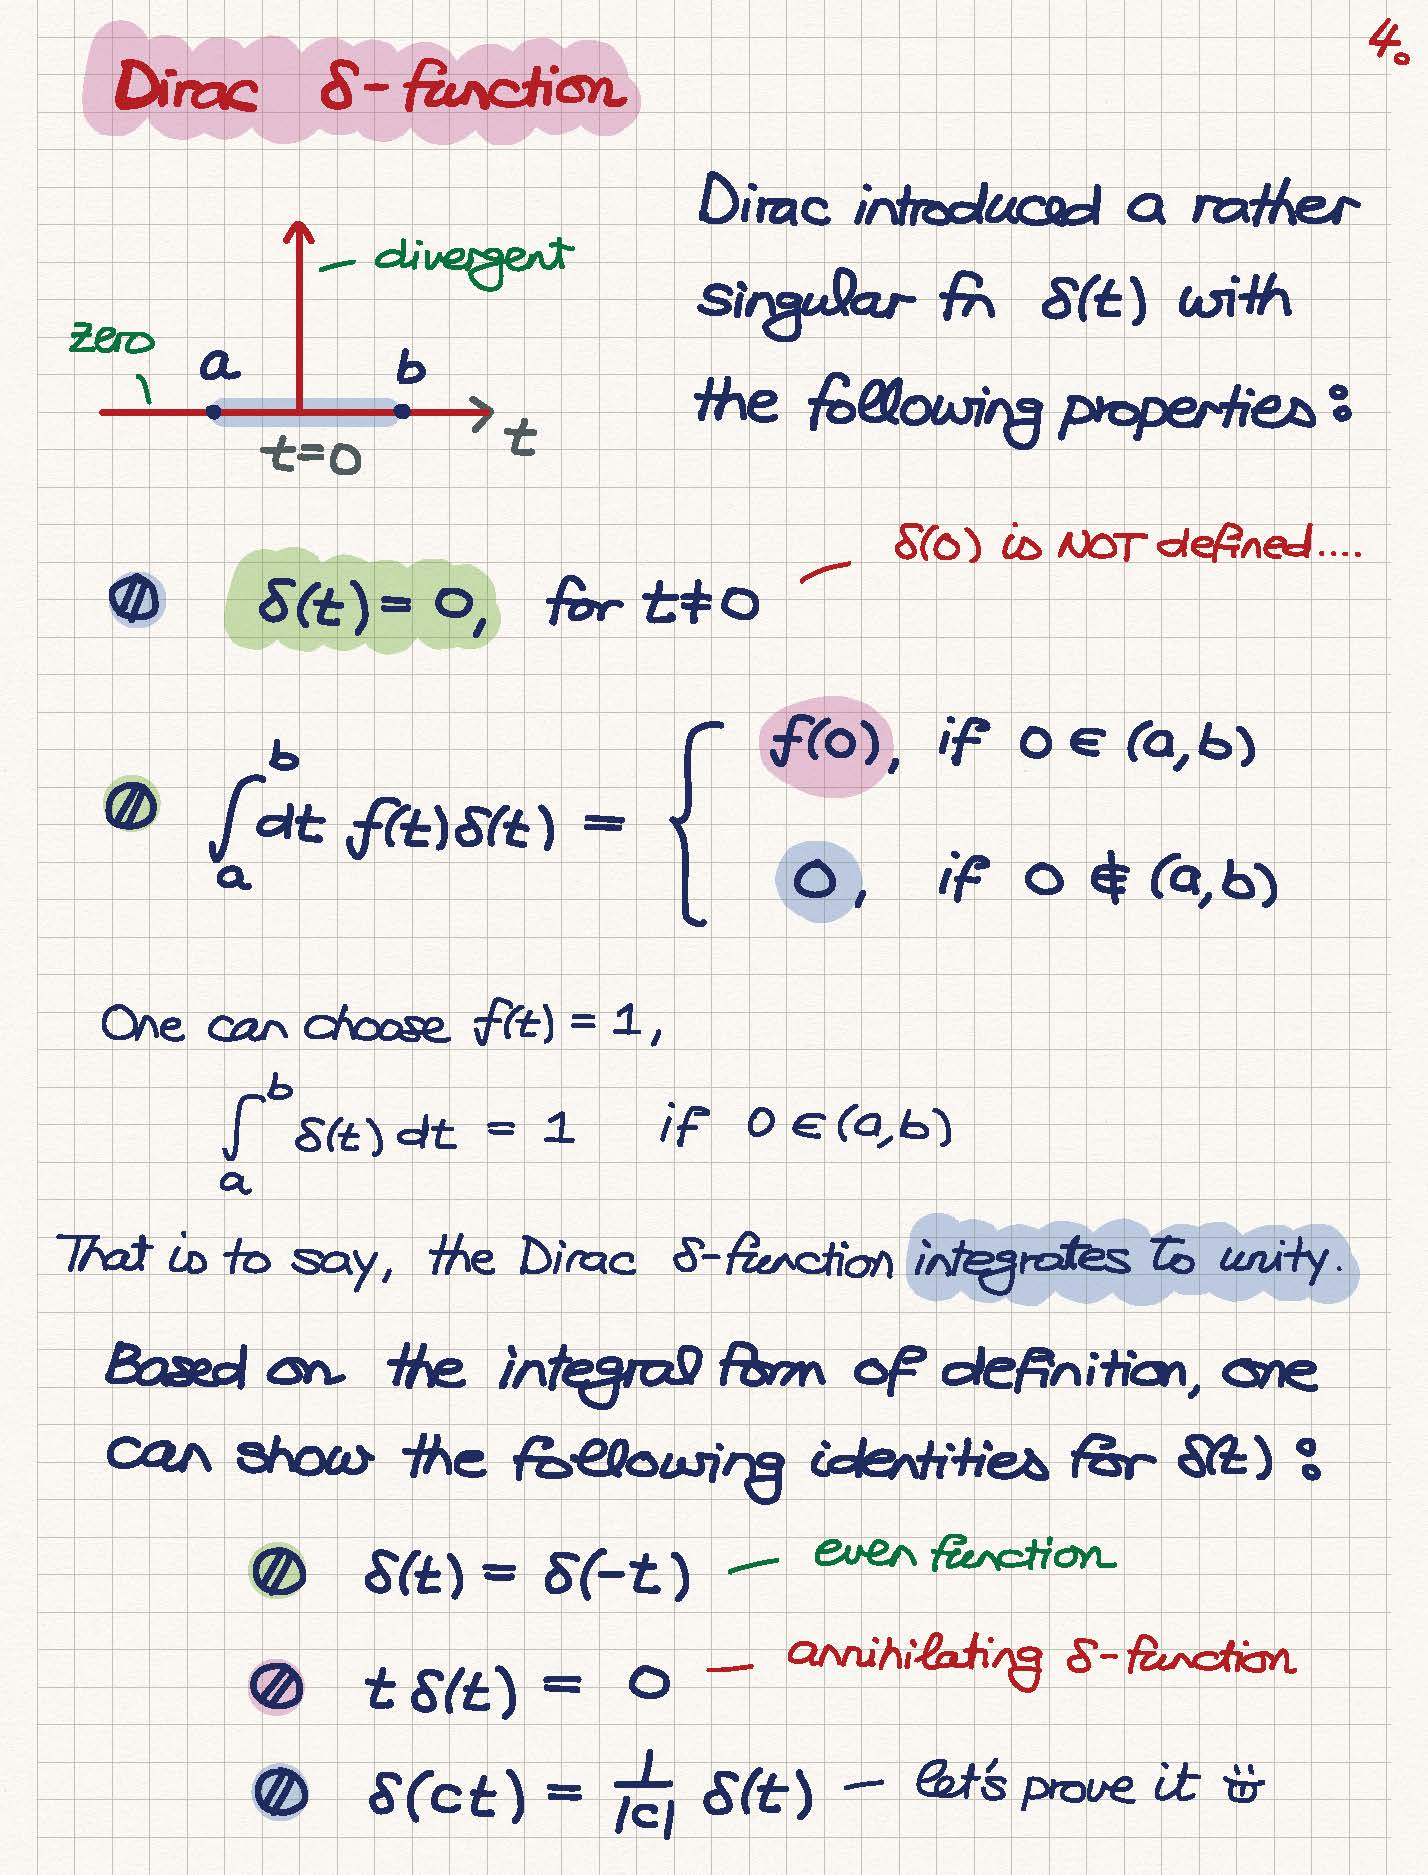 4.
Dirac δ-function
divergent
zero
a
b
t=0
t
Dirac introduced a rather
singular fn δ(t) with
the following properties:
δ(0) is NOT defined....
δ(t)= 0, for t≠0
∫_a^b dt f(t)δ(t) = { f(0), if 0 ∈ (a,b)
0, if 0 ∉ (a,b)
One can choose f(t) = 1,
∫_a^b δ(t) dt = 1 if 0 ∈ (a,b)
That is to say, the Dirac δ-function integrates to unity.
Based on the integral form of definition, one
can show the following identities for δ(t):
δ(t) = δ(-t) — even function
t δ(t) = 0 — annihilating δ-function
δ(ct) = 1/|c| δ(t) — let's prove it